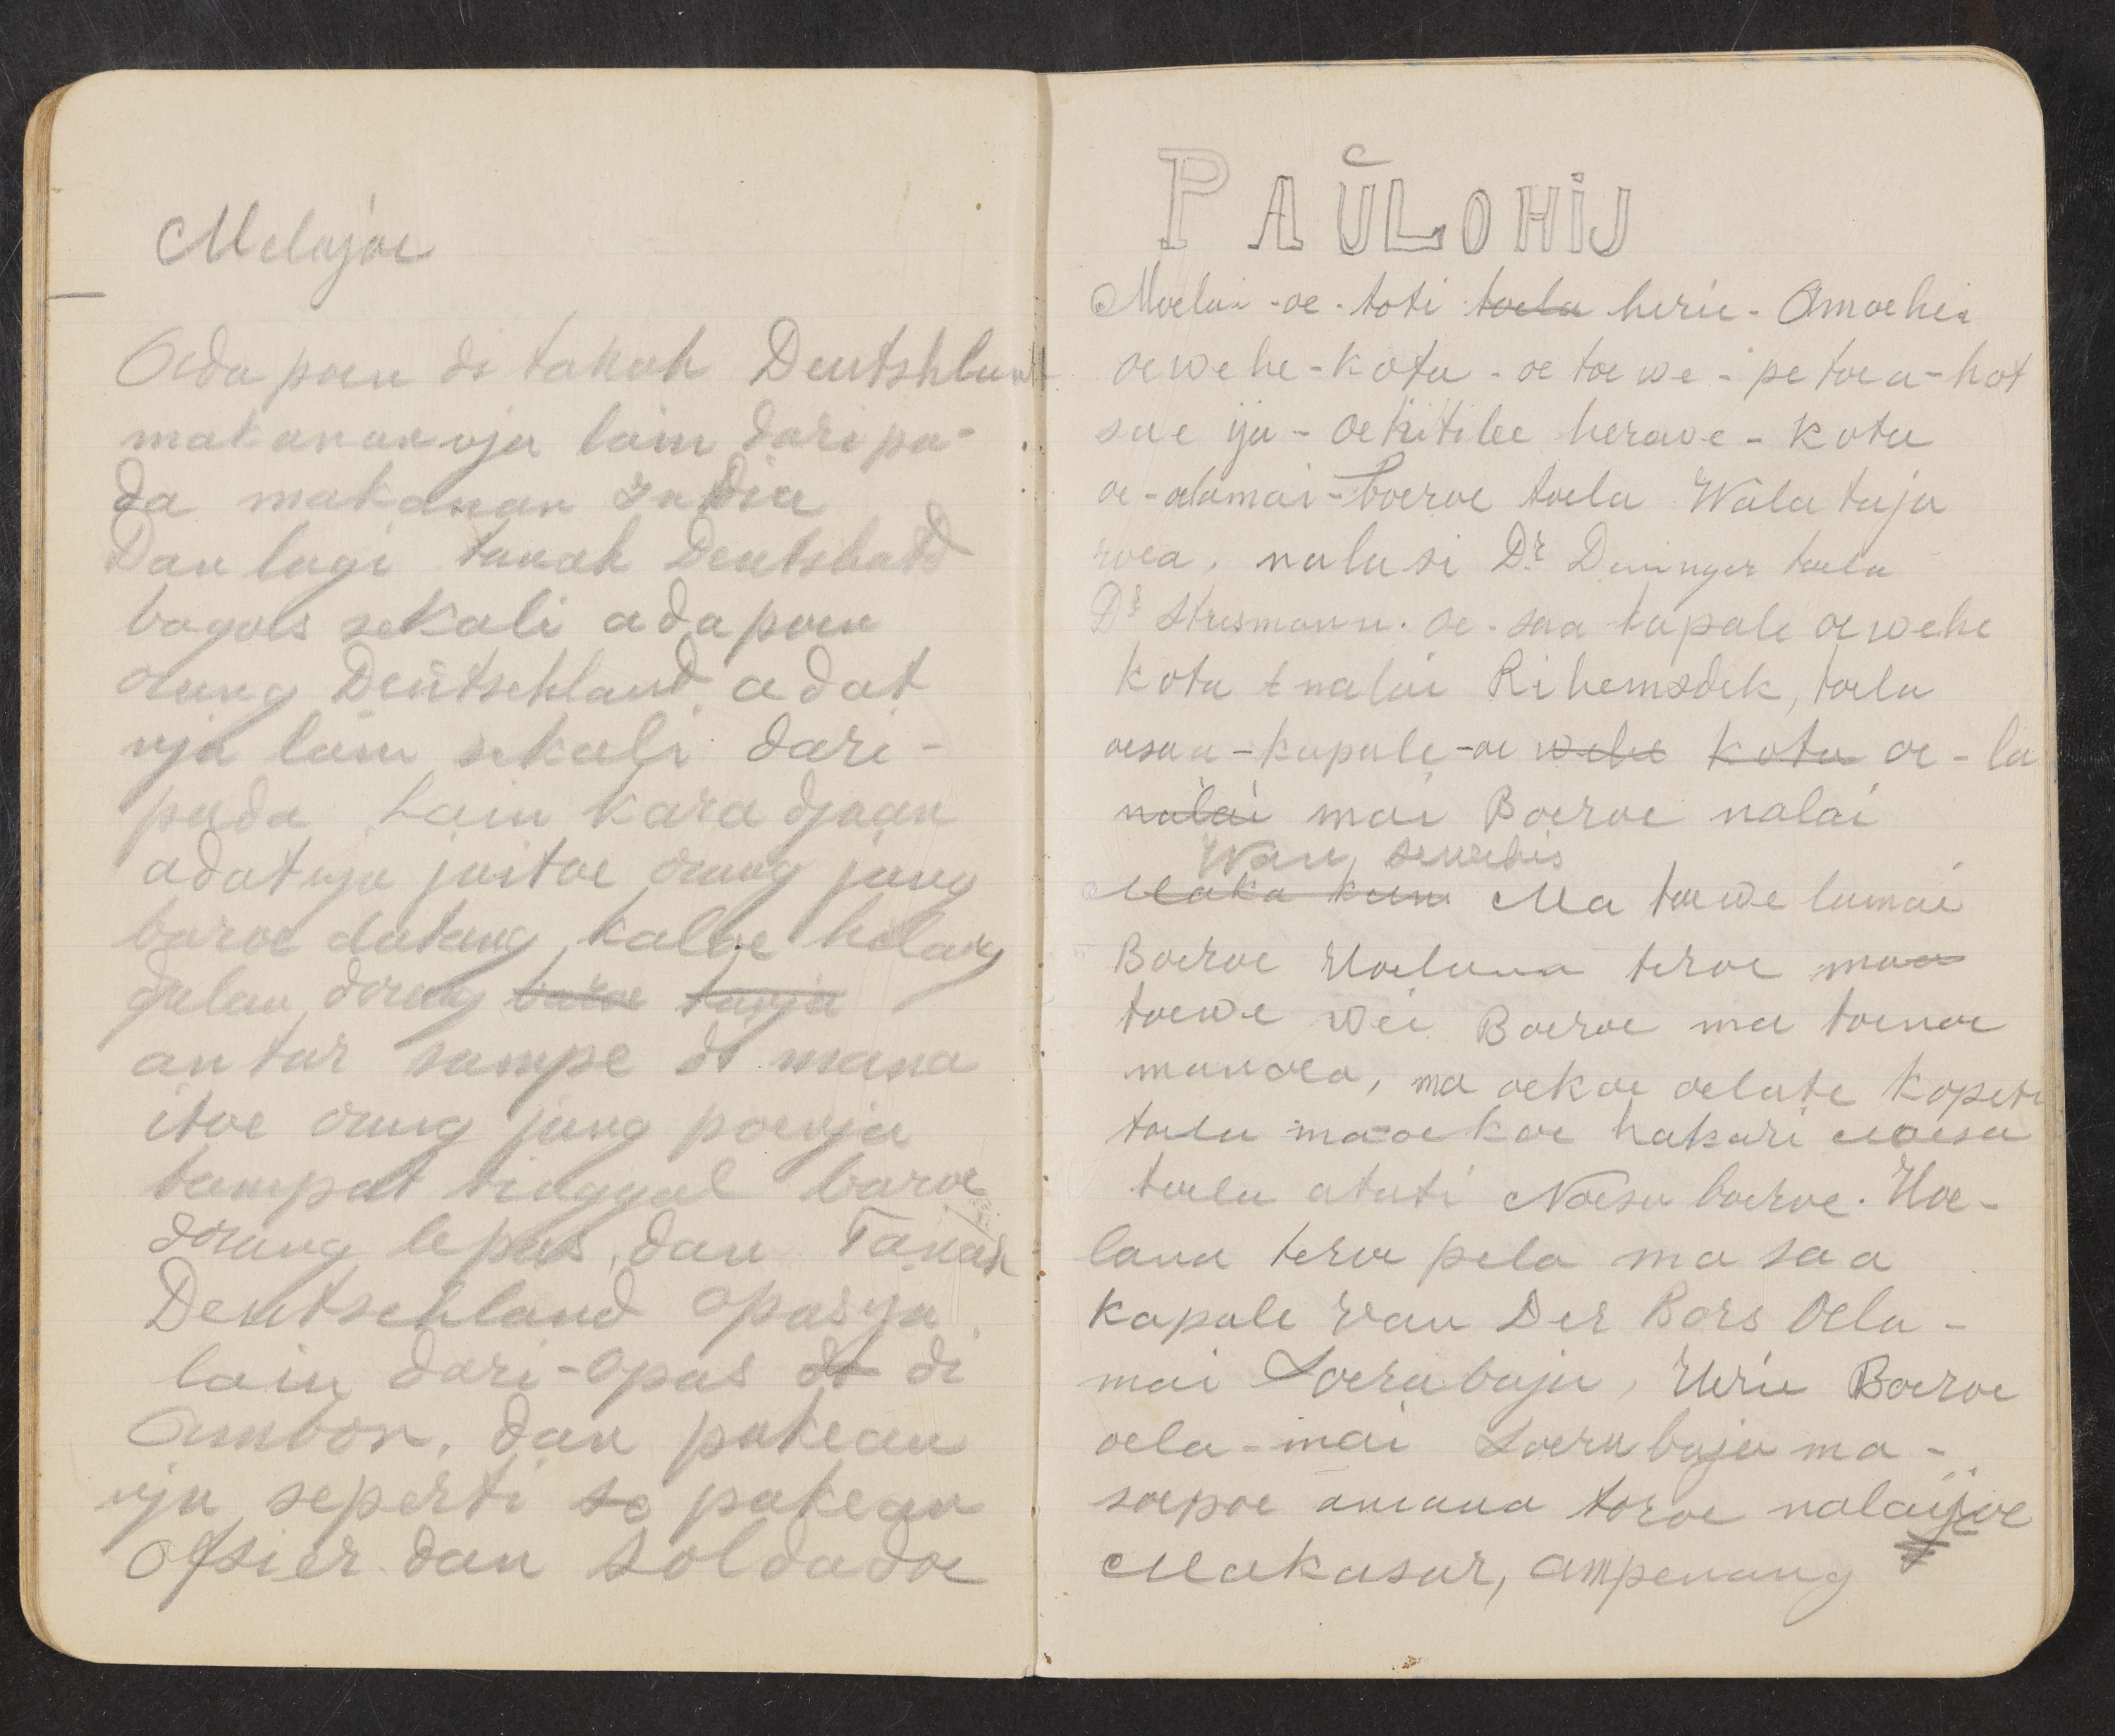 Melajoe
Adapoen di tanah Deutshland
makanannja lain daripa-
da makanan India
Dan lagi tanah Deutshald
bagoes sekali adapoen
orang Deutschland adat
nja lain sekali dari-
pada Lain karadjaan
adatnja jaitoe orang jang
baroe datang kaloe helang
djalan dorang baroe tanja
antar sampe di mana
itoe orang jang poenja
tampat tinggal baroe
dorang lepas, dan Tanah
Deutschland opasnja
lain dari-opas di di
Ambon, dan pakean
nja seperti se pakean
Ofsier dan Soldadoe
PAŬLOHIJ
Moelai-oe-toti toela herie-Amaehia
oewehe-kota-oe toewe-petoea-hot
sae ija-oekitilee heraoe-kota
oe-alamai-Boeroe toela Wala taja
roea, nalasi Dr Deninger toela
Dr Stresmann. oe-saa kapale oewehe
kota nalai Rihemsdek, toela
oesaa-kapale-oe wehe kota oe-la
nalai mai Boeroe nalai
Wae, sewehis
Maka kam Ma toewe lamai
Boeroe Hoelana teroe maa
toewe wei Boeroe ma toenoe
manoea, ma oekoe oelate Kopeti
toela ma oekoe hakari Noesa
toela atati Noesa boeroe. Hoe-
lana teroe pela ma saa
kapale Van Der Bors Oela-
mai Soerabaja, Herie Boeroe
oela-mai Soerabaja ma-
soepoe amana toroe nalaijoe
Makasar, Ampenang